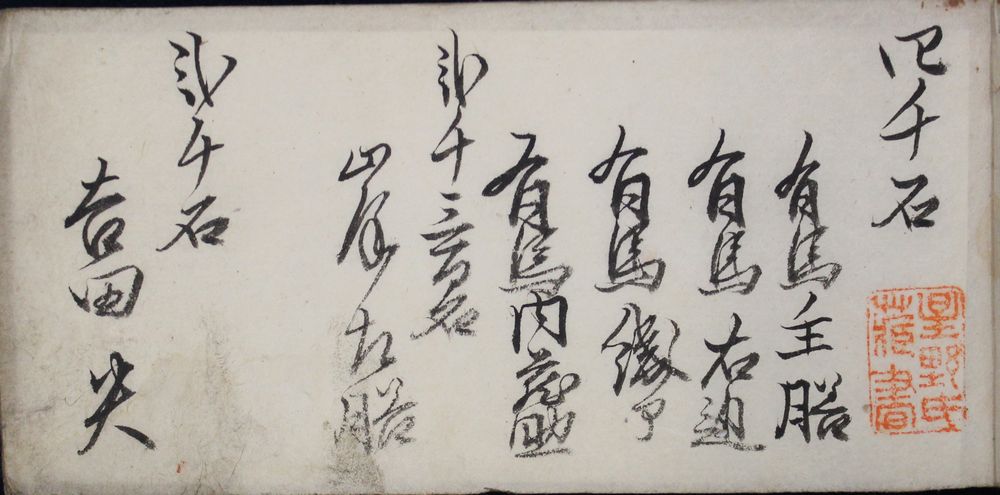 四千石
星野氏蔵書
有馬主膳
有馬右近
有馬織部
有馬内蔵助
弐千三百石
山岸左膳
弐千石
吉田